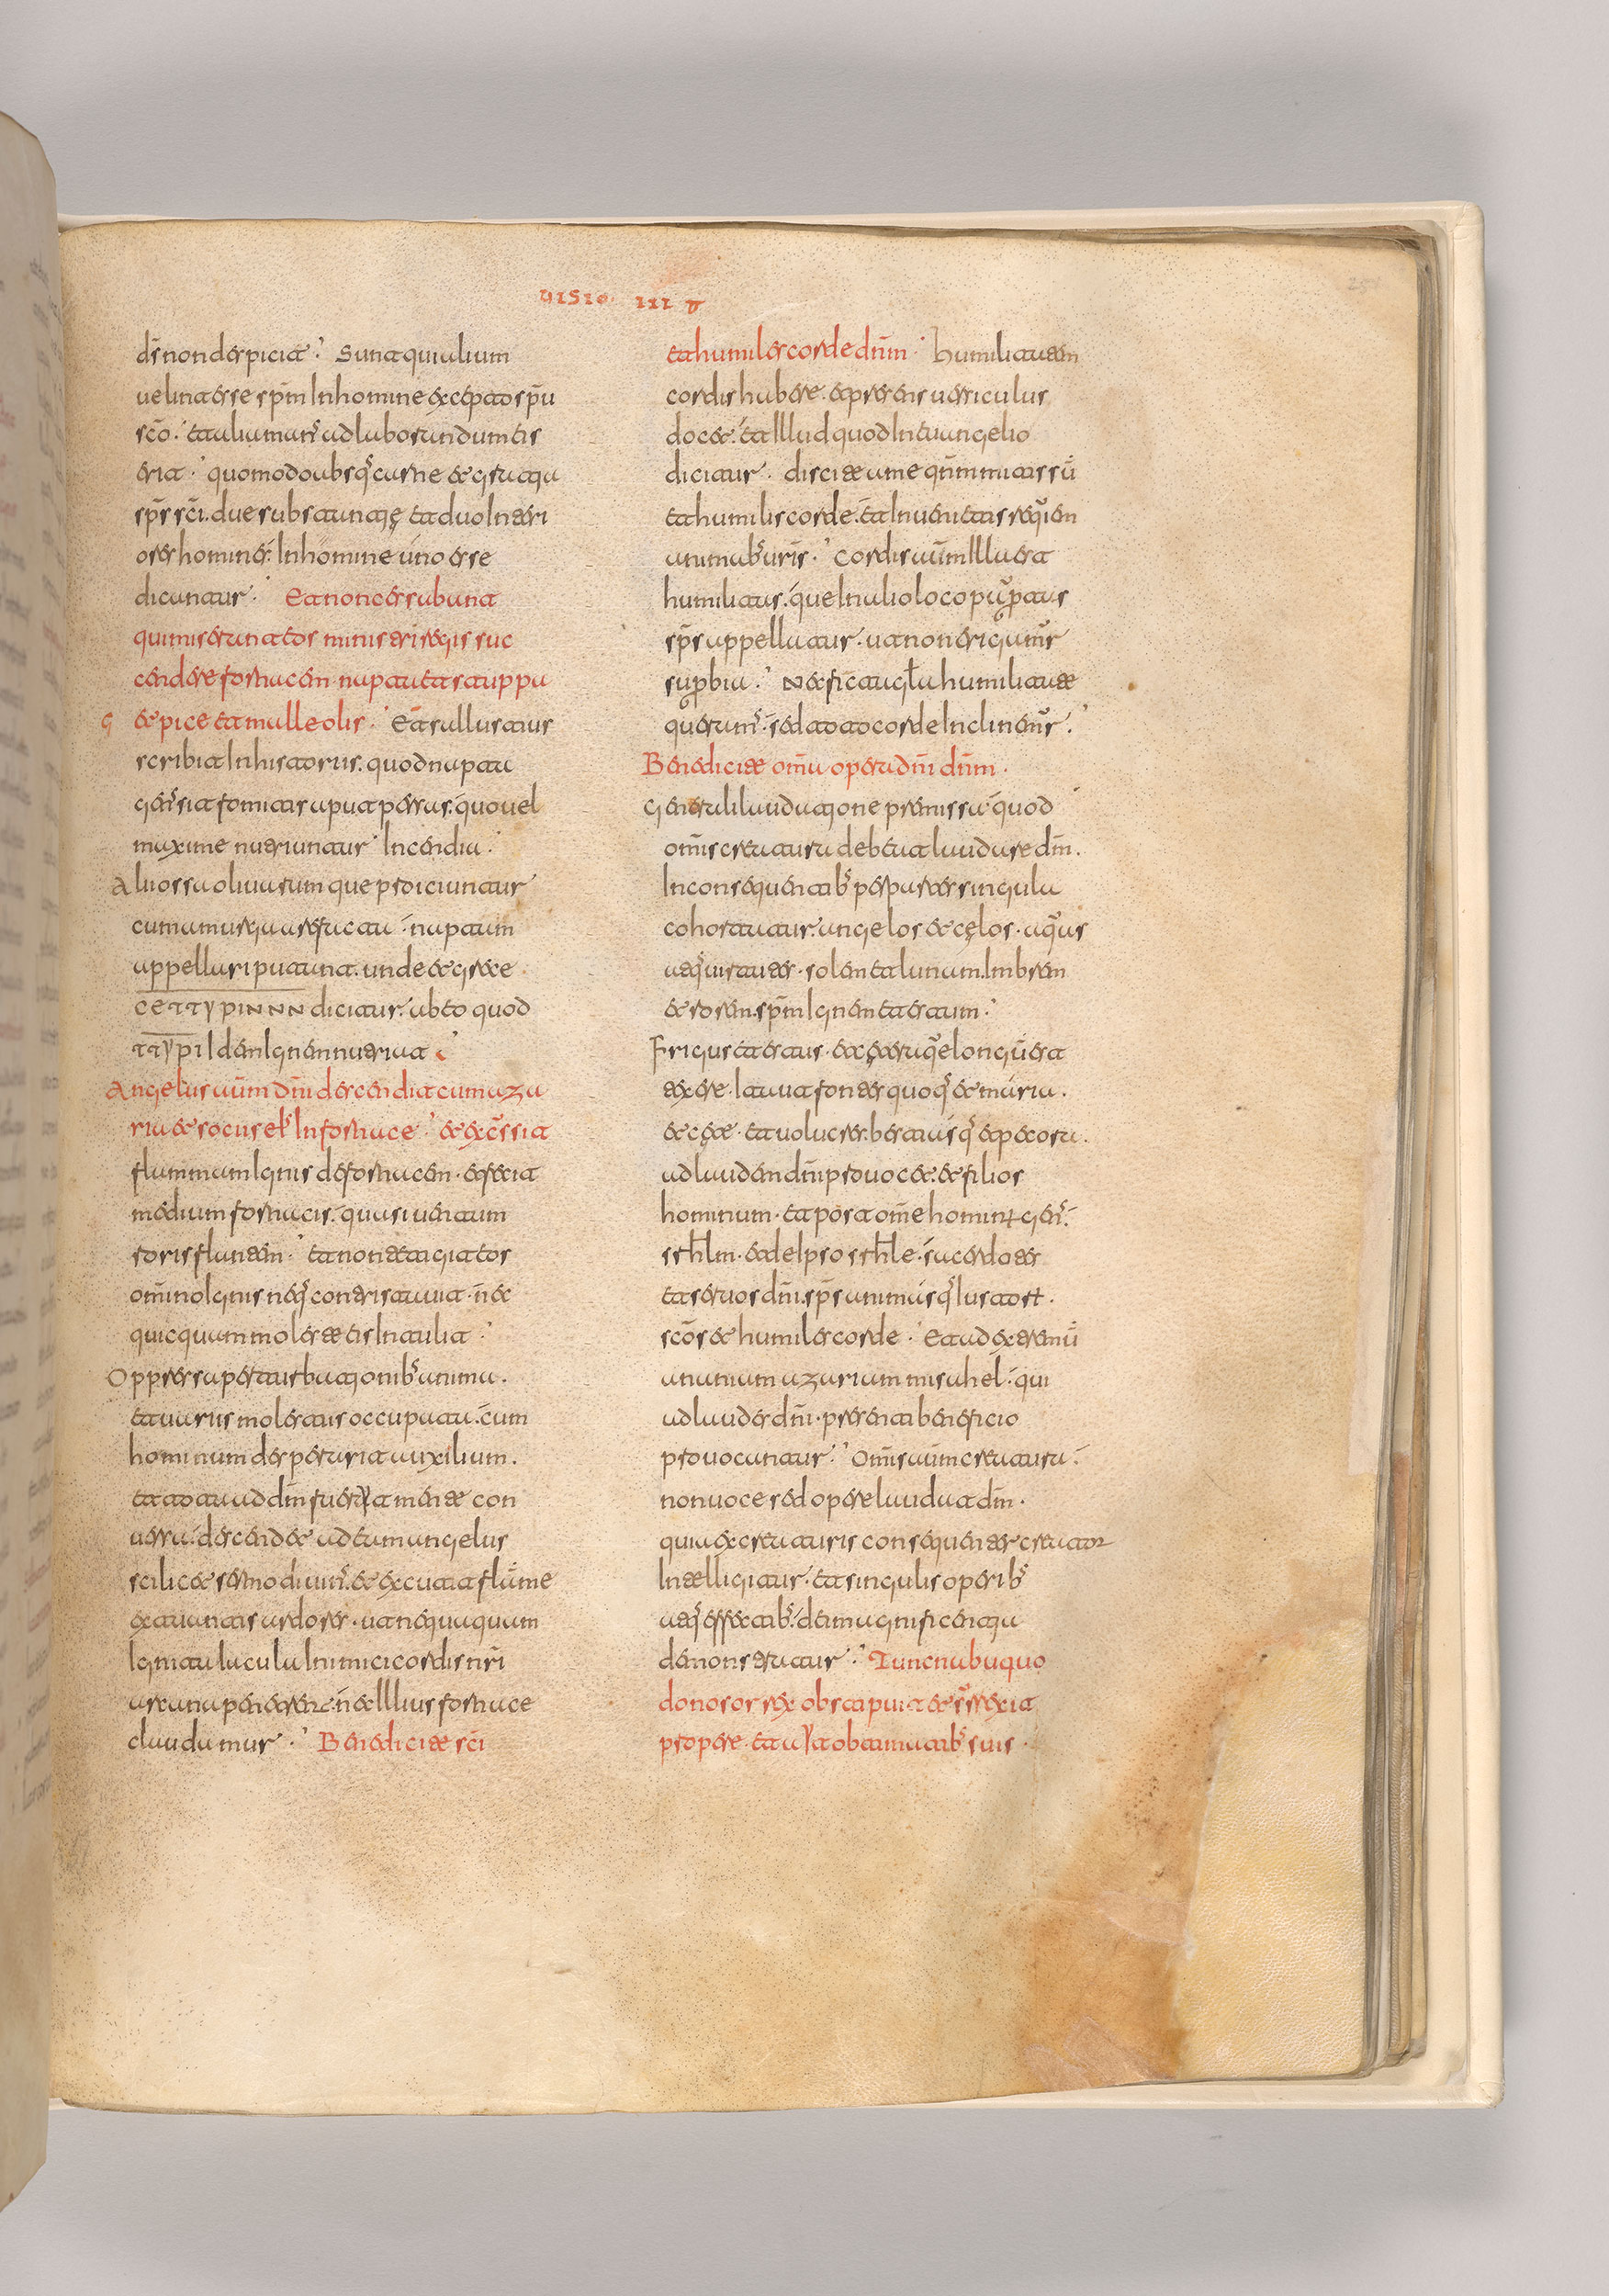 UISIO III D
ds̄ non despicit. Sunt qui alium
uelint esse spm̄ In homine excepto spu̅
sco̅. et alium anı̄ adlaborandum eis
erit. quomodo absq̄ carne et gratia
sp̄s sc̄i. due substantie et duo Interi
ores homines. In homine uno esse
dicuntur. Et non cessabant
qui miserant eos ministri regis suc
cendere fornacem napta et stuppa
et pice et malleolis. Et sallustius
scribit In historiis. quod napta
genı̄ sit fomitis aput persas. quo uel
maxime nutriuntur Incendia.
Alii ossa oliuarum que proiciuntur
cum amurga arefacta. naptam
appellari putant. unde et grece
dicitur. ab eo quod
Id em Ignem nutriat
Angelus aum̄ dni̅ descendit cum aza
ria et sociis ei In fornace. et excussit
flammam Ignis de fornacem. et fecit
medium fornacis. quasi uentum
roris flantem. et non tetigit eos
omn̄ino Ignis neq̄ contristauit. nec
quicquam molestie eis Intulit.
Oppressa pertaurbationib̄ anima.
et uariis molestiis occupata. cum
hominum desperarit auxilium.
et tota ad dm̄ fuerit mente con
uersa. descendet ad eam angelus
scilicet sermo diuinı̄. et excutit flāme
extuantis ardores. ut nequaquam
Ignita iacula Inimici cordis nr̄i
arcana penetrent. nec Illius fornace
claudamur. Benedicite sc̄i
et humiles corde dnm̄. Humilitatem
cordis habere. et presens uersiculus
docet. et Illud quod In euangelio
dicitur. discite a me qnm̄ mitis sū
et humilis corde. et Inuenietis requiem
animab̄ uris̄. Cordis aum̄ Illa est
humilitas. que In alio loco paup̄tas
sp̄s appellatur. ut non erigamı̄
sup̄bia. Nec ficta gl̄a humilitate
queramı̄. sed toto corde Inclinemı̄.
Benedicite omn̄a opera dn̄i dnm̄.
Generali laudatione premissa. quod
omn̄is creatura debeat laudare dm̄.
In consequentib̄ per partes singula
cohortatur. angelos et cęlos. aquas
atq̄ uirtutes. solem et lunam. Imbrem
et rorem. spm̄ Ignem et estum.
Frigus et estus. et cetera que longū est
texere. Ita ut fontes quoq̄ et maria.
et cete. et uolucres. bestias q̄ et pecora.
ad laudem dn̄i prouocet. et filios
hominum. et post omn̄e hominum genı̄.
srhl̄m. et de Ipso srhl̄e. sacerdotes
et seruos dn̄i. sp̄s animas q̄ Iustorum.
sco̅s et humiles corde. Et ad extremū
ananiam azariam misahel. qui
ad laudes dn̄i. presenti beneficio
prouocantur. Omn̄is aum̄ creatura.
non uoce sed opere laudat dm̄.
quia ex creaturis consequenter creator
Intelligitur. et singulis operib̄
atq̄ effectib̄. dei magnificentia
demonstratur. Tunc nabuquo
donosor rex obstupuit et surrexit
propere. et ait obtimatib̄ suis.